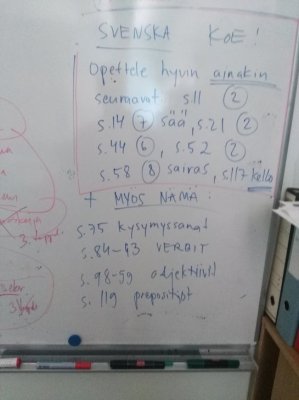 SVENSKA KOE!
Opettele hyvin ainakin
seuraavat. s.11 (2)
s.14 (7) sää, s.21 (2)
s.44 (6), s.52 (2)
s.58 (8) sairas, s.117 kello
+ MYÖS NÄMÄ:
s.75 kysymyssanat
s.84-93 VERBIT
s.98-99 adjektiivit
s. 119 prepositiot